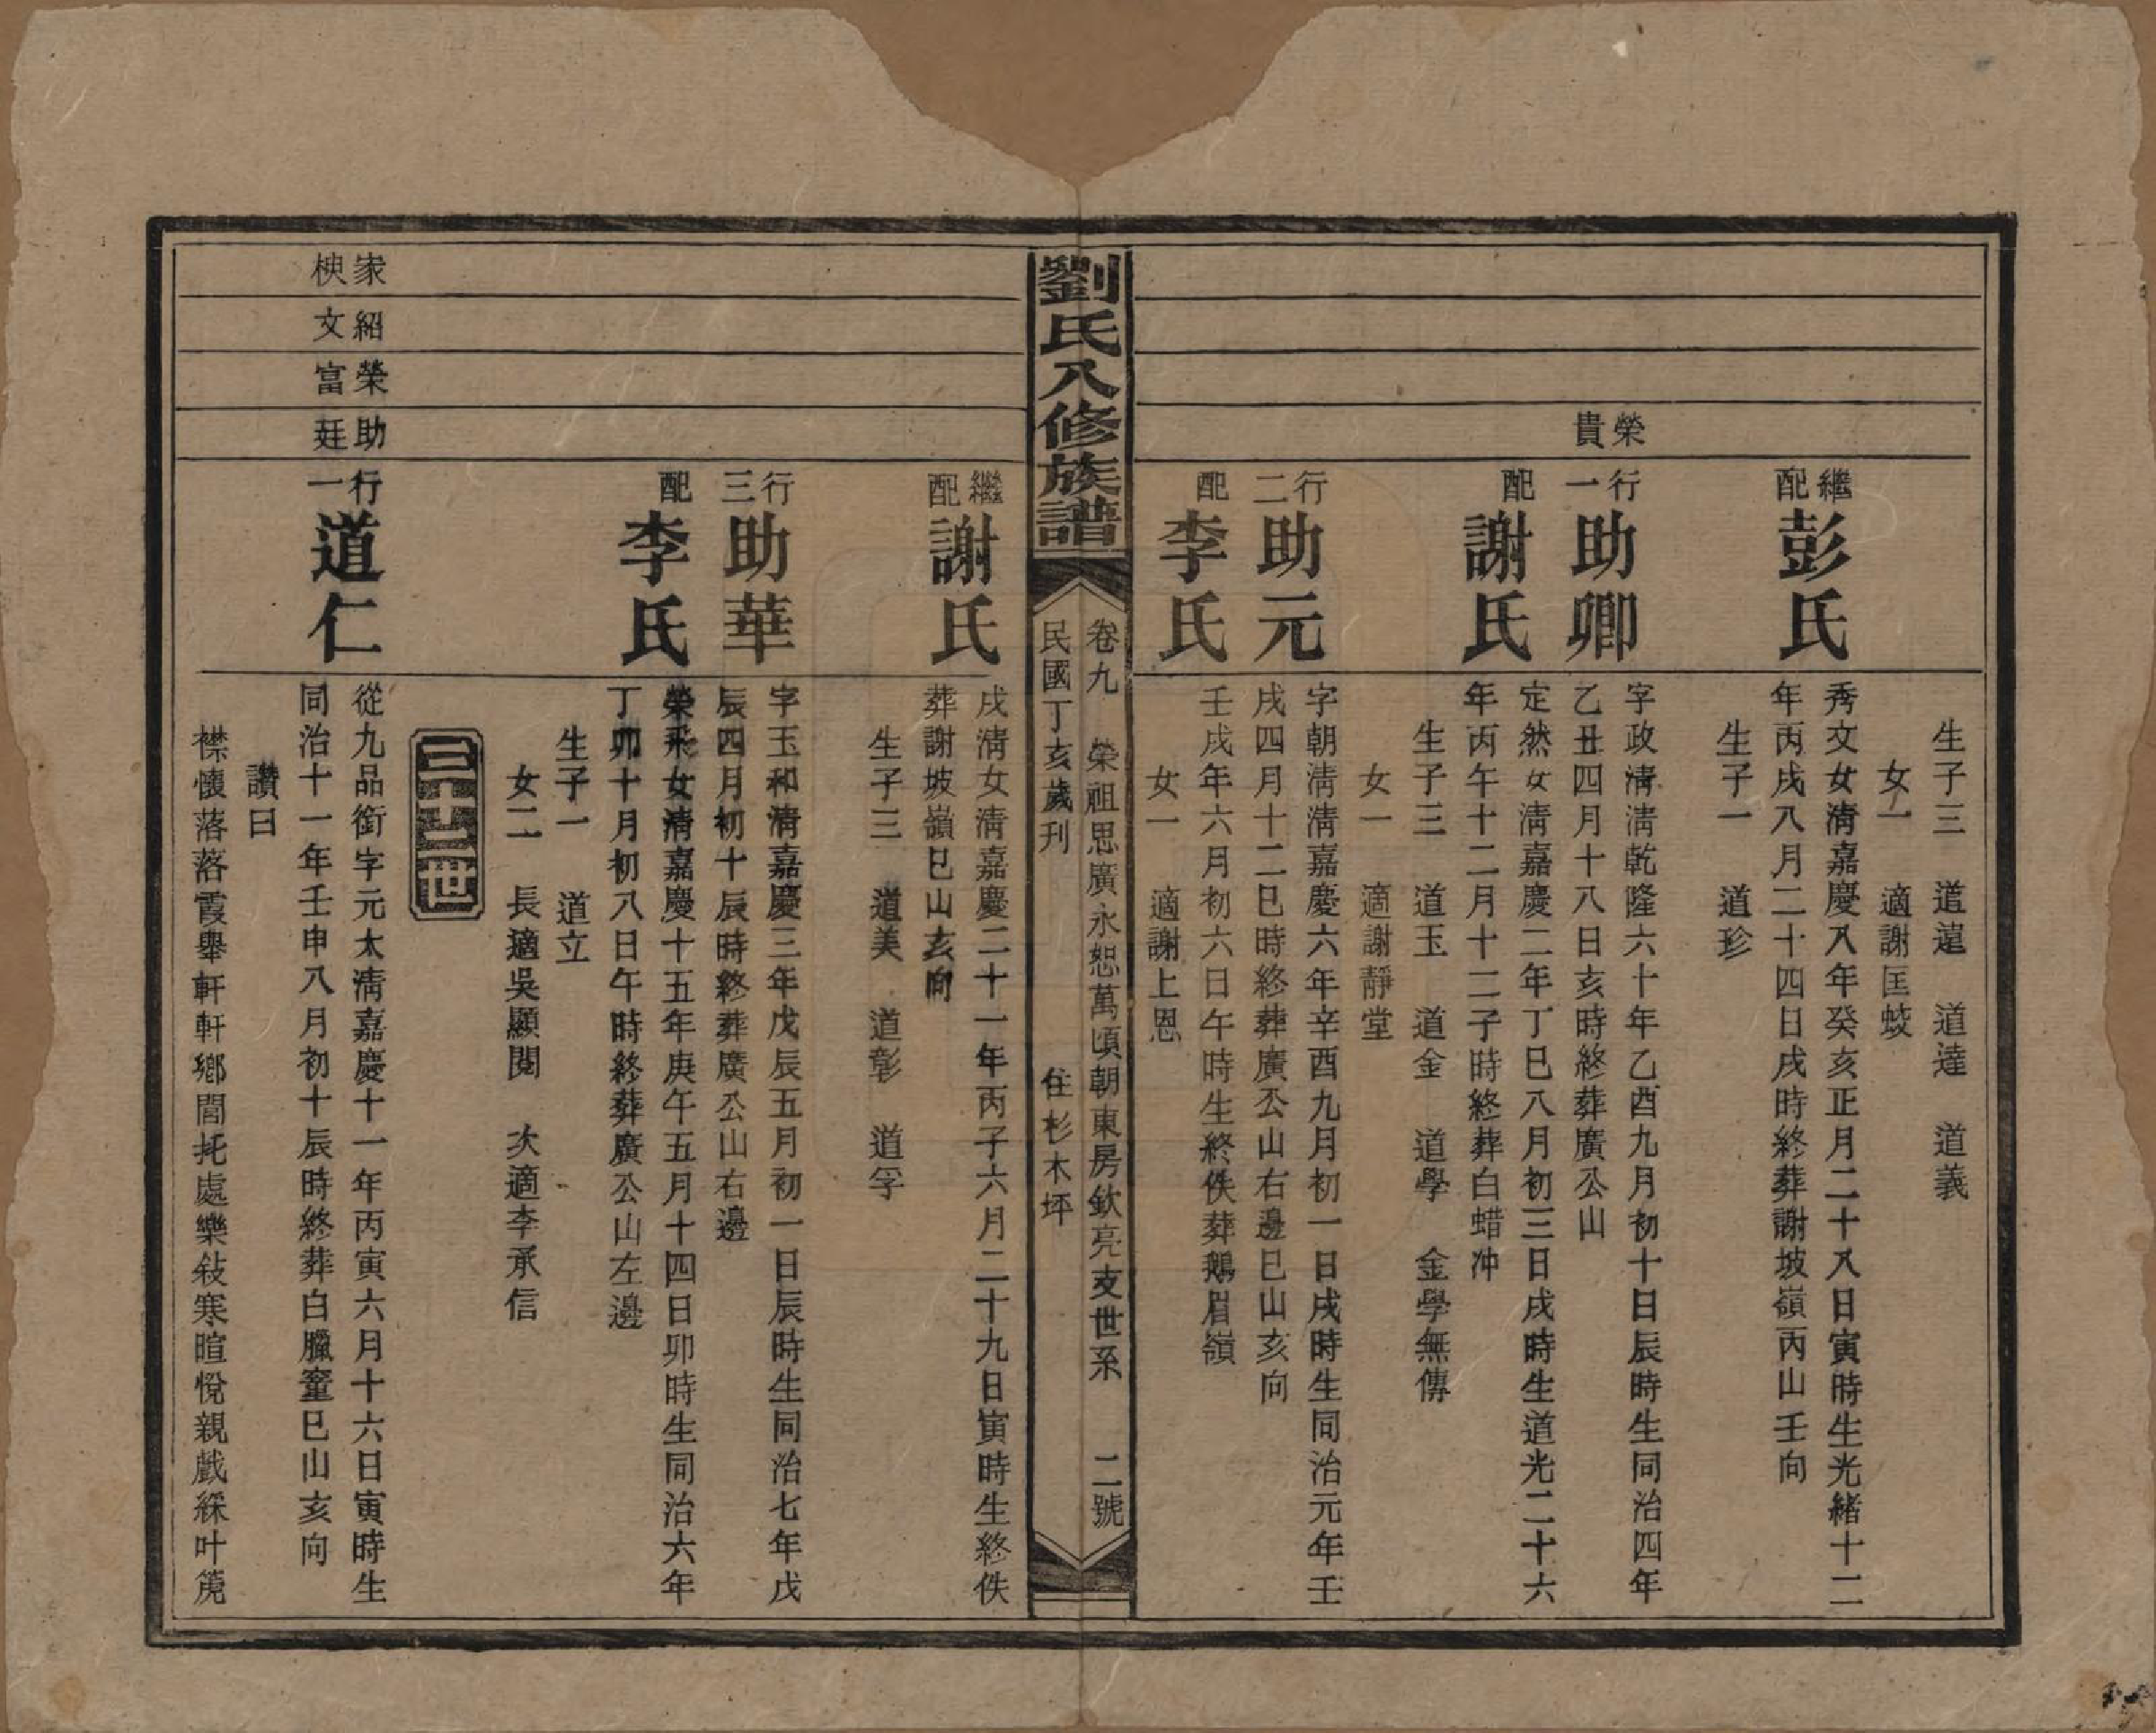 生子三　道遑　道達　道義
女一　適謝匡蛟
繼配彭氏
秀文女淸嘉慶八年癸亥正月二十八日寅時生光緒十二
年丙戌八月二十四日戌時終葬謝坡嶺丙山壬向
生子一　道珍
榮貴
行一助卿
字政淸淸乾隆六十年乙酉九月初十日辰時生同治四年
乙丑四月十八日亥時終葬廣公山
配謝氏
定然女淸嘉慶二年丁巳八月初三日戌時生道光二十六
年丙午十二月十二子時終葬白蜡冲
生子三　道玉　道金　道學　金學無傳
女一　適謝靜堂
行二助元
字朝淸淸嘉慶六年辛酉九月初一日戌時生同治元年壬
戌四月十二巳時終葬廣公山右邊巳山亥向
配李氏
壬戌年六月初六日午時生終佚葬鵝眉嶺
女一　適謝上恩
劉氏八修族譜
卷九　榮祖思廣永恕萬頃朝東房欽亮支世系　二號
民國丁亥歲刊　住杉木坪
繼配謝氏
戌淸女淸嘉慶二十一年丙子六月二十九日寅時生終佚
葬謝坡嶺巳山亥向
生子三　道美　道彰　道孚
行三助華
字玉和淸嘉慶三年戊辰五月初一日辰時生同治七年戊
辰四月初十辰時終葬廣公山右邊
配李氏
榮飛女淸嘉慶十五年庚午五月十四日卯時生同治六年
丁卯十月初八日午時終葬廣公山左邊
生子一　道立
女二　長適吳顯閔　次適李承信
三十二世
家紹榮助
柍文富廷
行一道仁
從九品銜字元太淸嘉慶十一年丙寅六月十六日寅時生
同治十一年壬申八月初十辰時終葬白臘窰巳山亥向
讚曰
襟懷落落霞舉軒軒鄉閭托處樂敍寒暄悅親戲綵叶篪